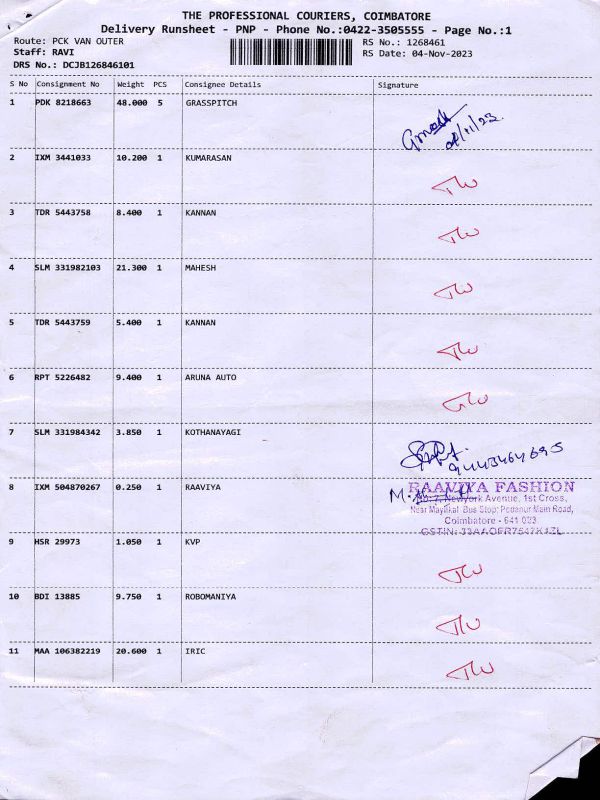 THE PROFESSIONAL COURIERS, COIMBATORE
Delivery Runsheet - PNP - Phone No.:0422-3505555 - Page No.:1
Route: PCK VAN OUTER RS No.: 1268461
Staff: RAVI RS Date: 04-Nov-2023
DRS No.: DCJB126846101
S No Consignment No Weight PCS Consignee Details Signature
1 PDK 8218663 48.000 5 GRASSPITCH
2 IXM 3441033 10.200 1 KUMARASAN
3 TDR 5443758 8.400 1 KANNAN
4 SLM 331982103 21.300 1 MAHESH
5 TDR 5443759 5.400 1 KANNAN
6 RPT 5226482 9.400 1 ARUNA AUTO
7 SLM 331984342 3.850 1 KOTHANAYAGI
8 IXM 504870267 0.250 1 RAAVIYA RAAVIYA FASHION
Newyork Avenue, 1st Cross,
Bus Stop, Main Road,
Coimbatore - 641 023
9 HSR 29973 1.050 1 KVP
10 BDI 13885 9.750 1 ROBOMANIYA
11 MAA 106382219 20.600 1 IRIC